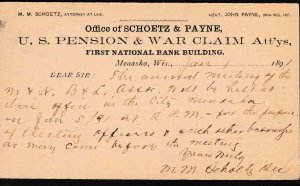 M. M. SCHOETZ, ATTORNEY AT LAW. LIEUT. JOHN PAYNE,
Office of SCHOETZ & PAYNE,
U. S. PENSION & WAR CLAIM Att'ys,
FIRST NATIONAL BANK BUILDING.
Menasha, Wis., Jan 1 1891
DEAR SIR: The annual meeting of the
M & N. B & L. Assn. Will be held at
their office in the City Menasha
on Jan 5/91 at 7 P.M. for the purpose
of Electing officers & such other business
as may come before the meeting
Yours truly
M. M. Schoetz Sec